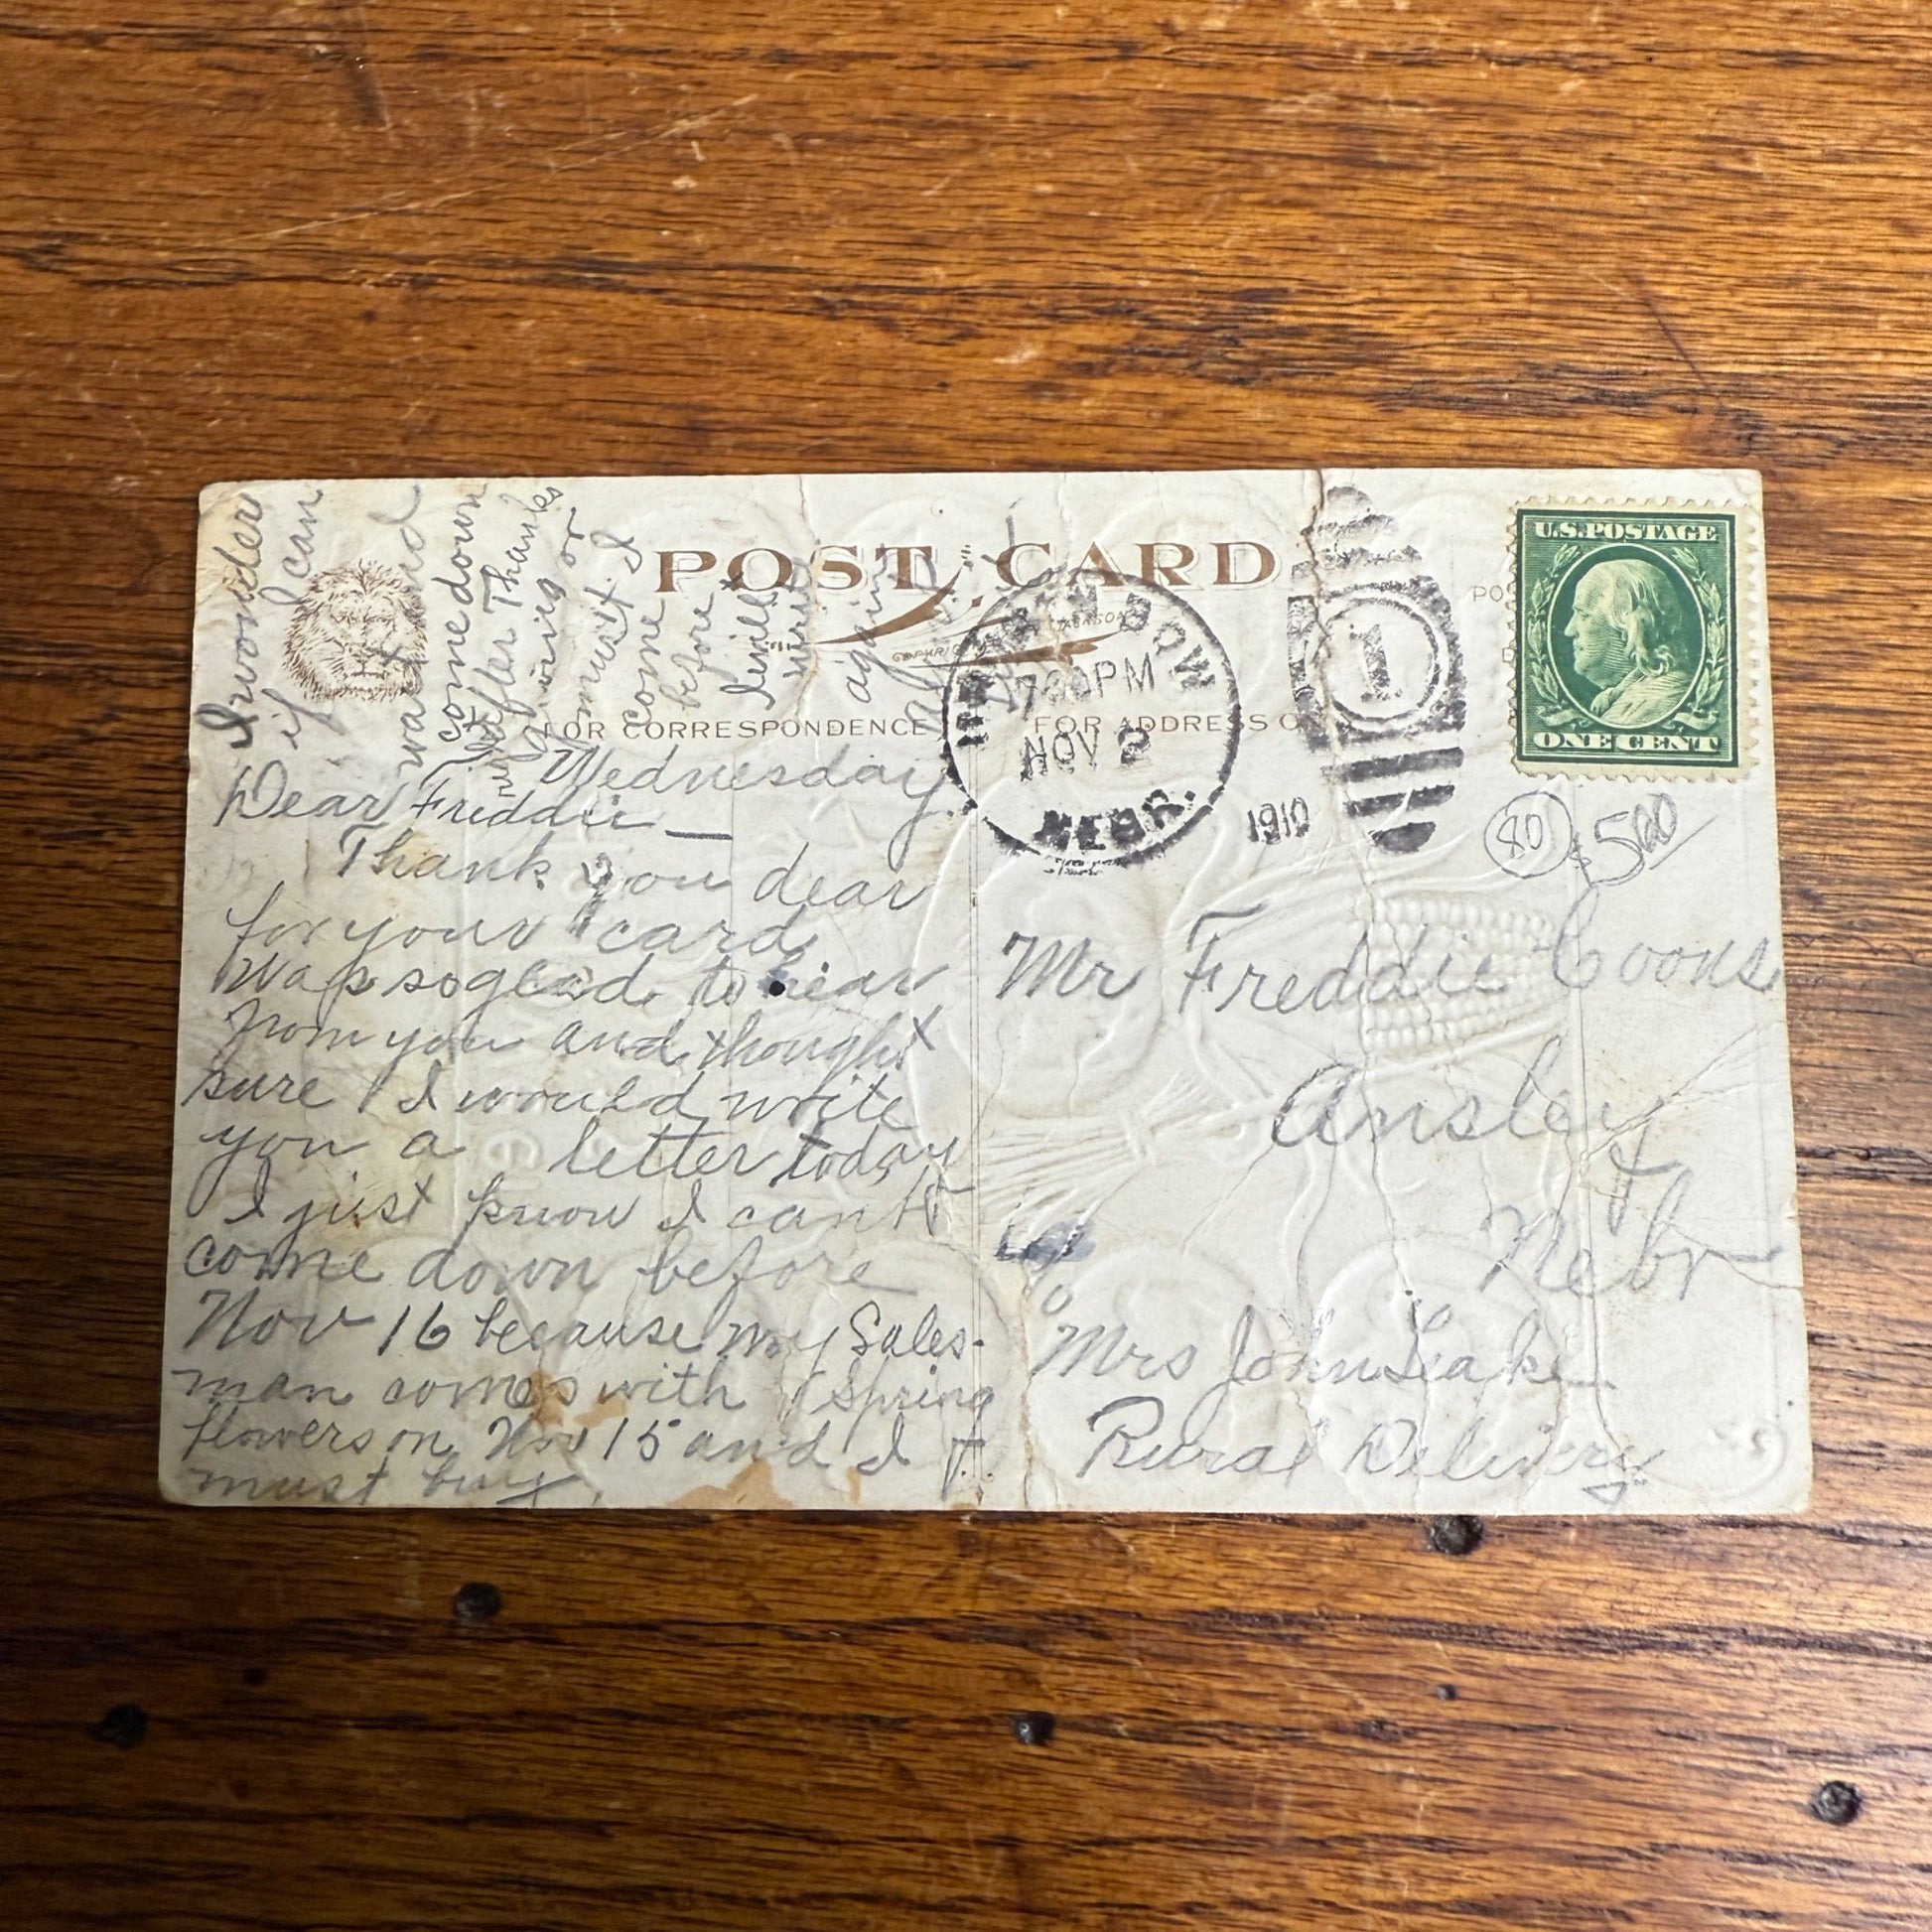 POST CARD
FOR CORRESPONDENCE
FOR ADDRESS O
U.S. POSTAGE
ONE CENT
BROKEN BOW
7 PM
NOV 2
NEBR.
1910
1
80
$5.00
Wednesday.
Dear Freddie —
Thank you dear
for your card
Was so glad to hear
from you and thought
sure I would write
you a letter today
I just know I can't
come down before
Nov 16 because my Sales-
man comes with Spring
flowers on Nov 15 and I
must buy.
I wonder
if I can
wait and
come down
right after Thanks
giving or
must I
come
before
I will
write
again
Mr Freddie Coons
Ansley
Nebr
℅
Mrs John Leake
Rural Delivery